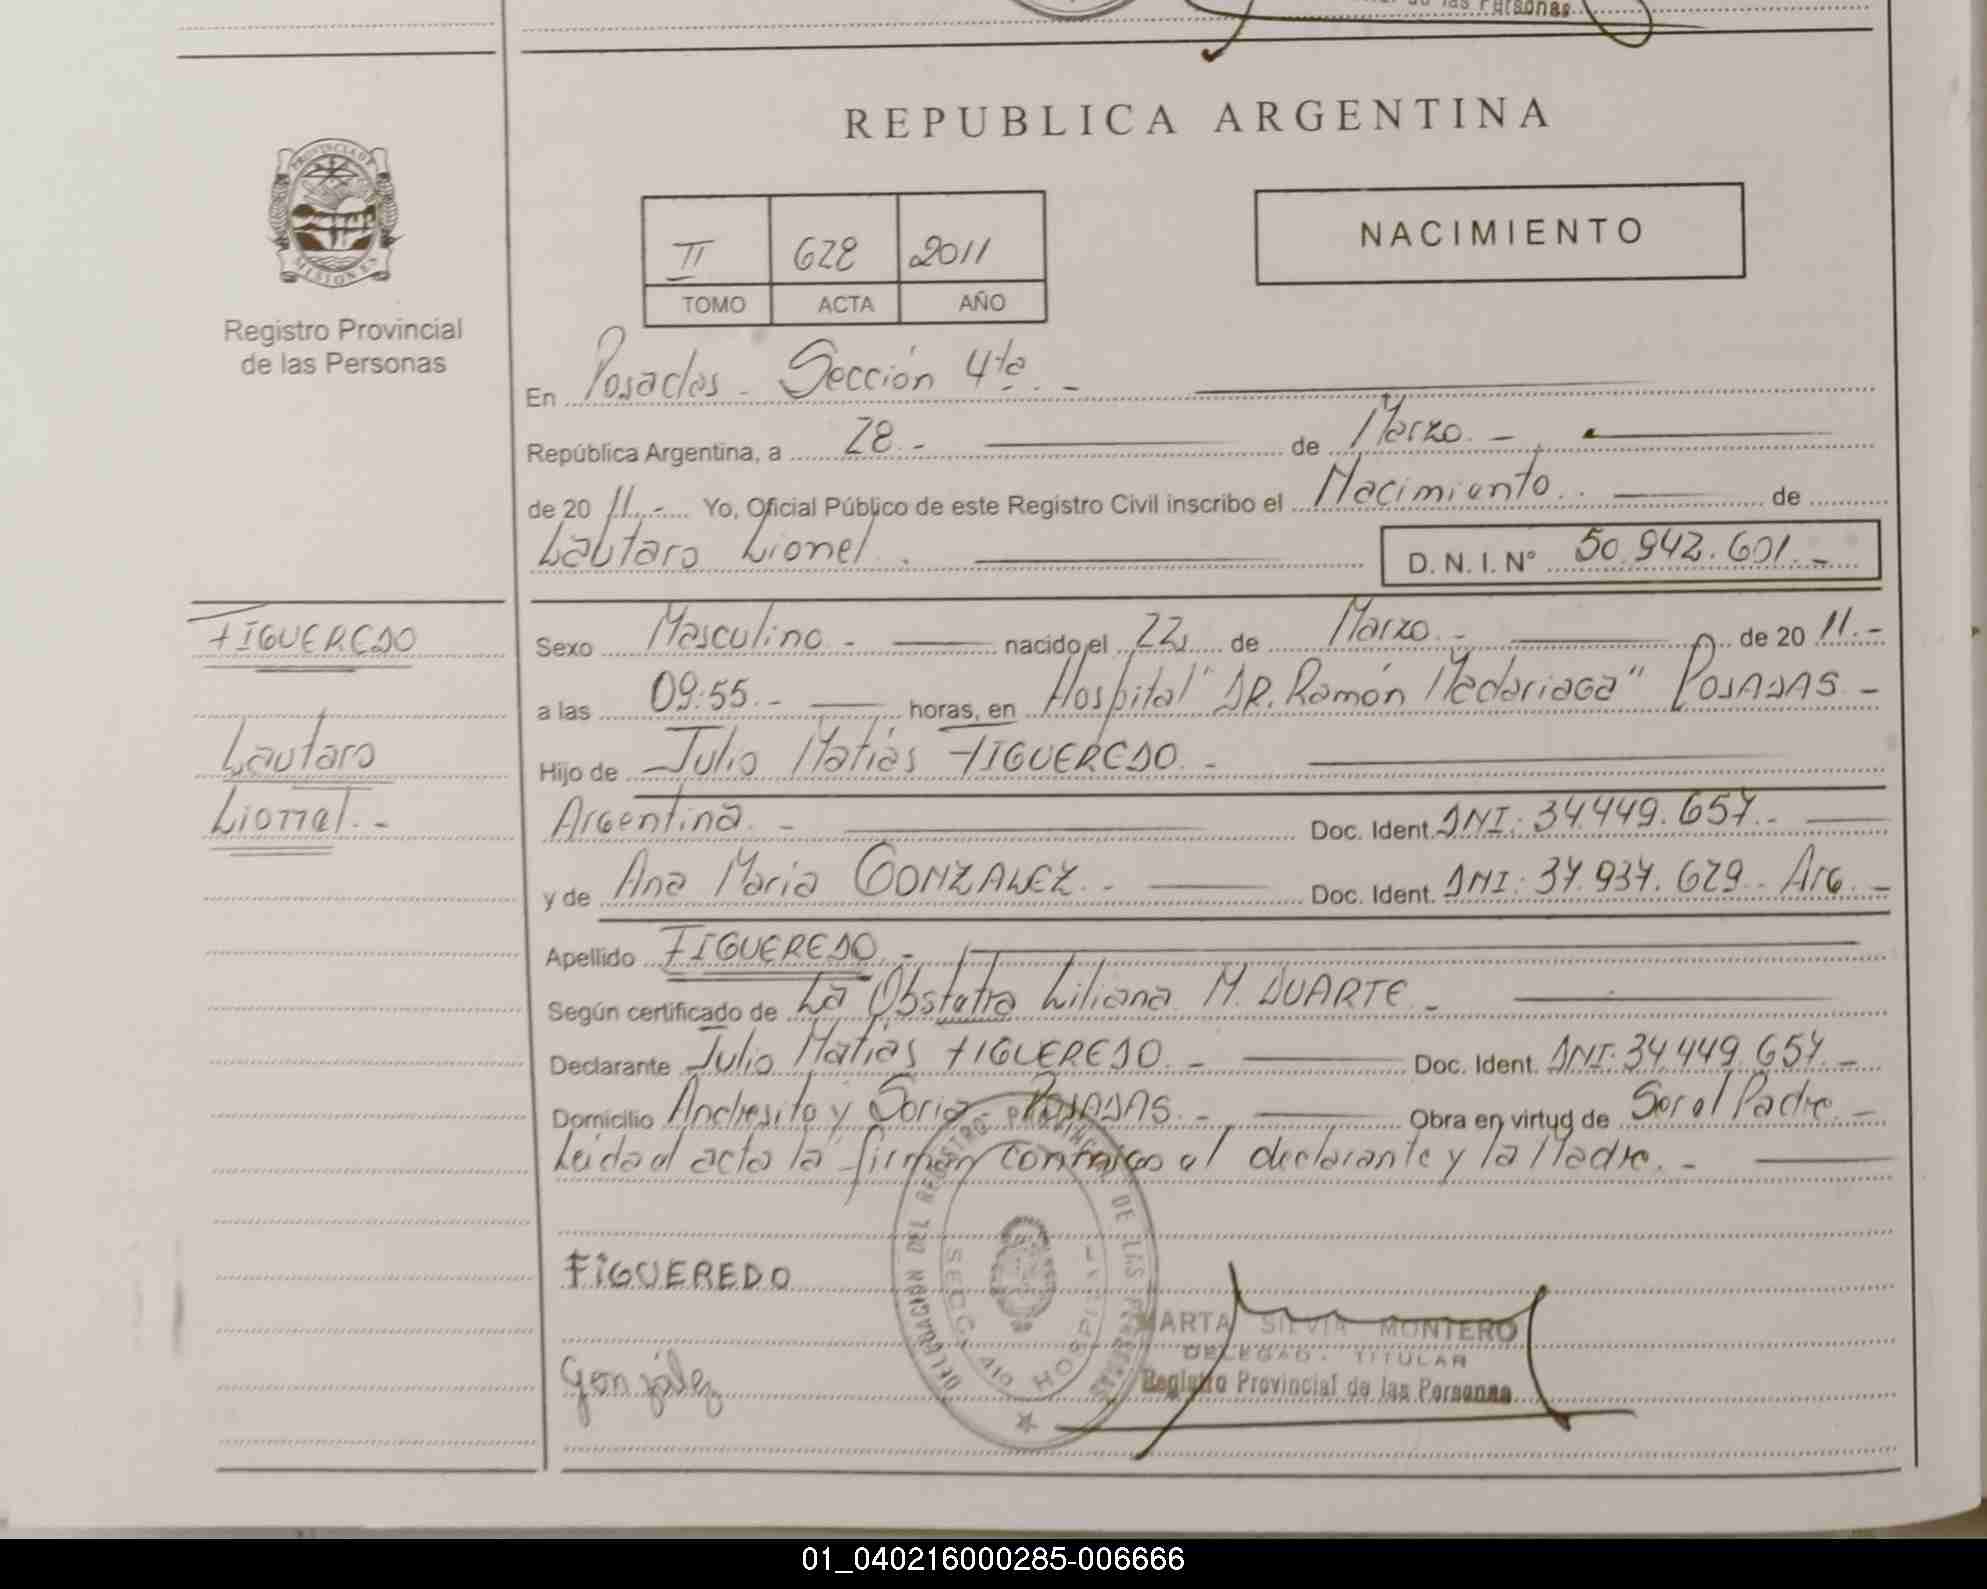 de las Personas
REPUBLICA ARGENTINA
PROVINCIA DE
MISIONES
Registro Provincial
de las Personas
II 628 2011
TOMO ACTA AÑO
NACIMIENTO
En Posadas - Sección 4ta. -
República Argentina, a 28. - de Marzo. -
de 20 11. - Yo, Oficial Público de este Registro Civil inscribo el Nacimiento. de
Lautaro Lionel. D. N. I. N° 50.942.601. -
FIGUEREDO
Lautaro
Lionel. -
Sexo Masculino - nacido el 22 de Marzo. - de 20 11. -
a las 09:55. - horas, en Hospital "DR. Ramón Madariaga" POSADAS -
Hijo de Julio Matías FIGUEREDO. -
Argentina. - Doc. Ident. DNI: 34.449.657. -
y de Ana Maria GONZALEZ. - Doc. Ident. DNI: 37.937.629. Arg. -
Apellido FIGUEREDO. -
Según certificado de La Obstetra Liliana M. DUARTE. -
Declarante Julio Matías FIGUEREDO. - Doc. Ident. DNI: 34.449.657. -
Domicilio Andresito y Soria - POSADAS. - Obra en virtud de Ser el Padre. -
Leida el acta la firman conmigo el declarante y la Madre. -
FiGUEREDO
González
DELEGACION DEL REGISTRO PROVINCIAL DE LAS PERSONAS
SECC. 4TO HOSPITAL
MARTA SILVIA MONTERO
DELEGAD. TITULAR
Registro Provincial de las Personas
01_040216000285-006666